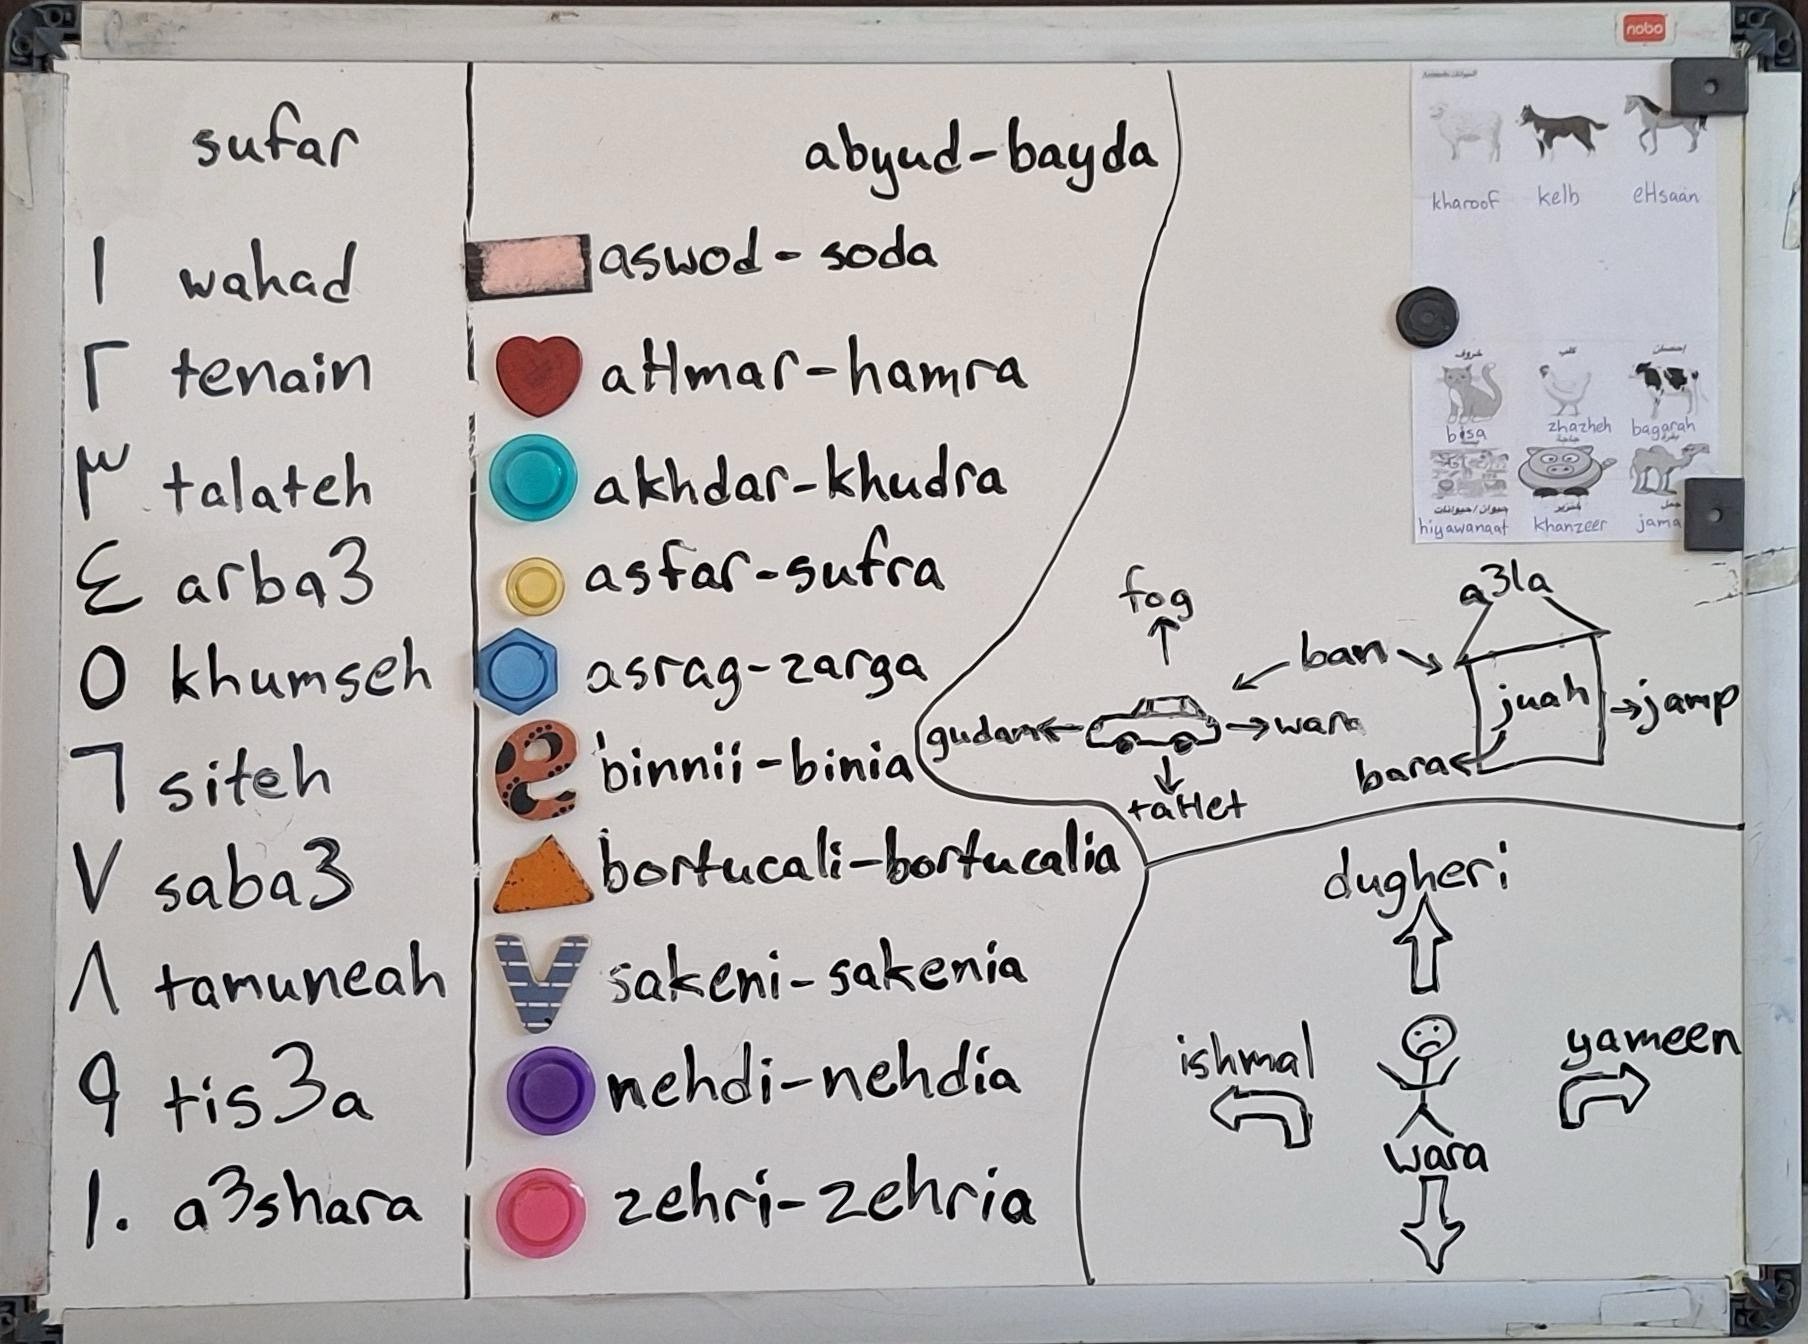 nobo
sufar
١ wahad
٢ tenain
٣ talateh
٤ arba3
٥ khumseh
٦ siteh
٧ saba3
٨ tamuneah
٩ tis3a
١٠ a3shara
abyud-bayda
aswod-soda
aHmar-hamra
akhdar-khudra
asfar-sufra
asrag-zarga
e binnii-binia
bortucali-bortucalia
v sakeni-sakenia
nehdi-nehdia
zehri-zehria
Animals الحيوانات
kharoof kelb eHsaan
خروف كلب إحصان
bisa zhazheh bagarah
بسة جاجة بقرة
حيوان/حيوانات خنزير جمل
hiyawanaat khanzeer jama
fog
ban
gudam
wara
taHet
a3la
juah
jamp
bara
dugheri
ishmal
yameen
wara